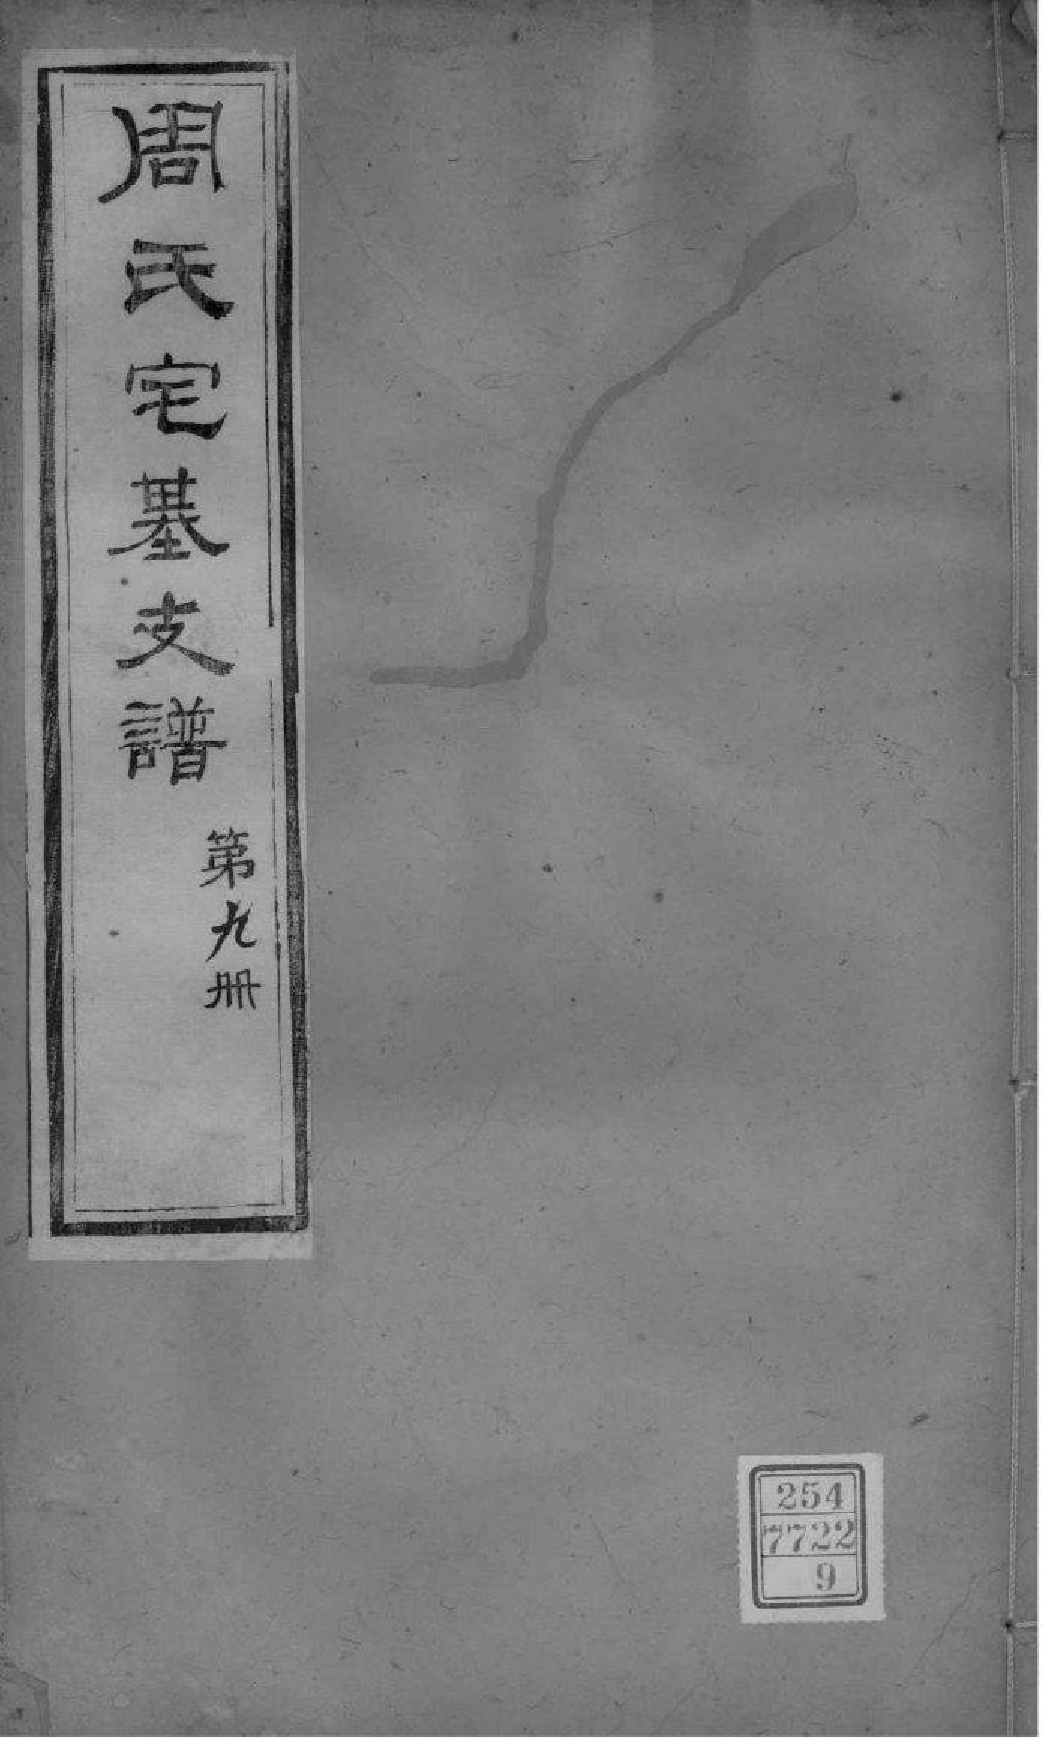 周氏宅基支譜
第九册
254
7722
9